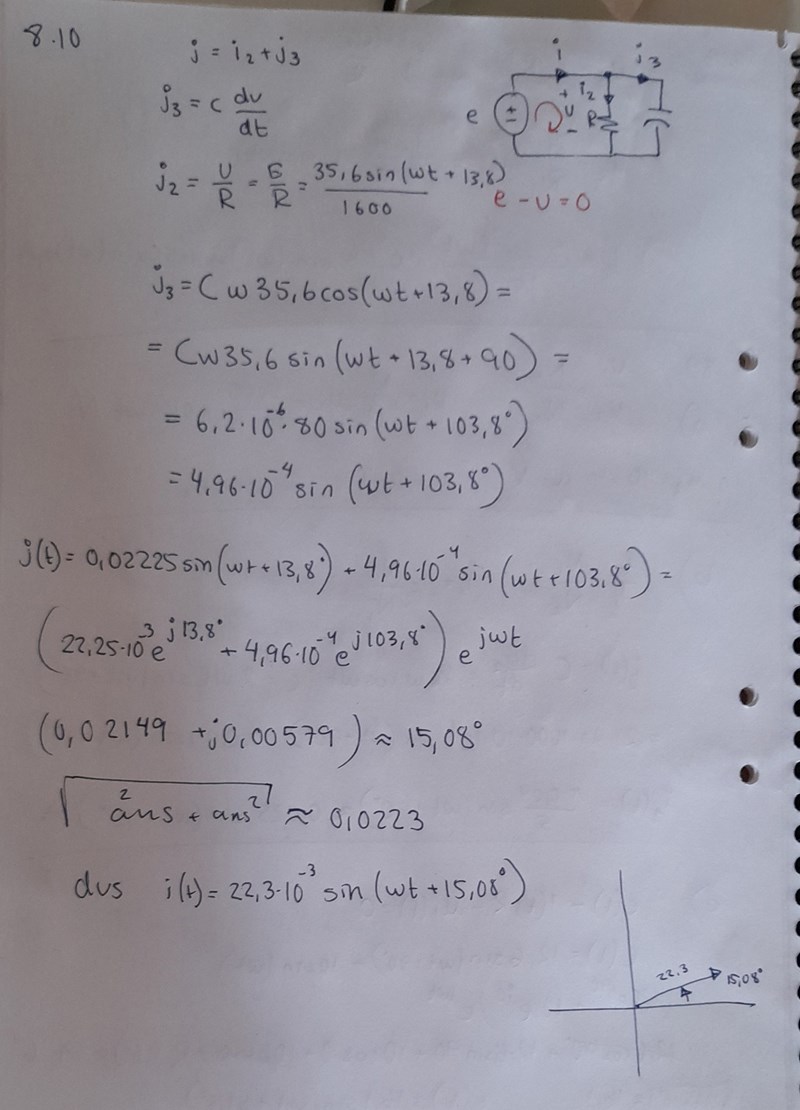 8.10
i = i₂ + i₃
i i₃
i₃ = C dv/dt
e + U - i₂ R
i₂ = U/R = E/R = 35,6 sin(wt + 13,8)/1600
e - U = 0
i₃ = C w 35,6 cos(wt + 13,8) =
= C w 35,6 sin(wt + 13,8 + 90) =
= 6,2·10⁻⁶·80 sin(wt + 103,8°)
= 4,96·10⁻⁴ sin(wt + 103,8°)
i(t) = 0,02225 sin(wt + 13,8°) + 4,96·10⁻⁴ sin(wt + 103,8°) =
(22,25·10⁻³ e^j13,8° + 4,96·10⁻⁴ e^j103,8°) e^jwt
(0,02149 + j0,00579) ≈ 15,08°
√(ans² + ans²) ≈ 0,0223
dvs i(t) = 22,3·10⁻³ sin(wt + 15,08°)
22.3 15,08°